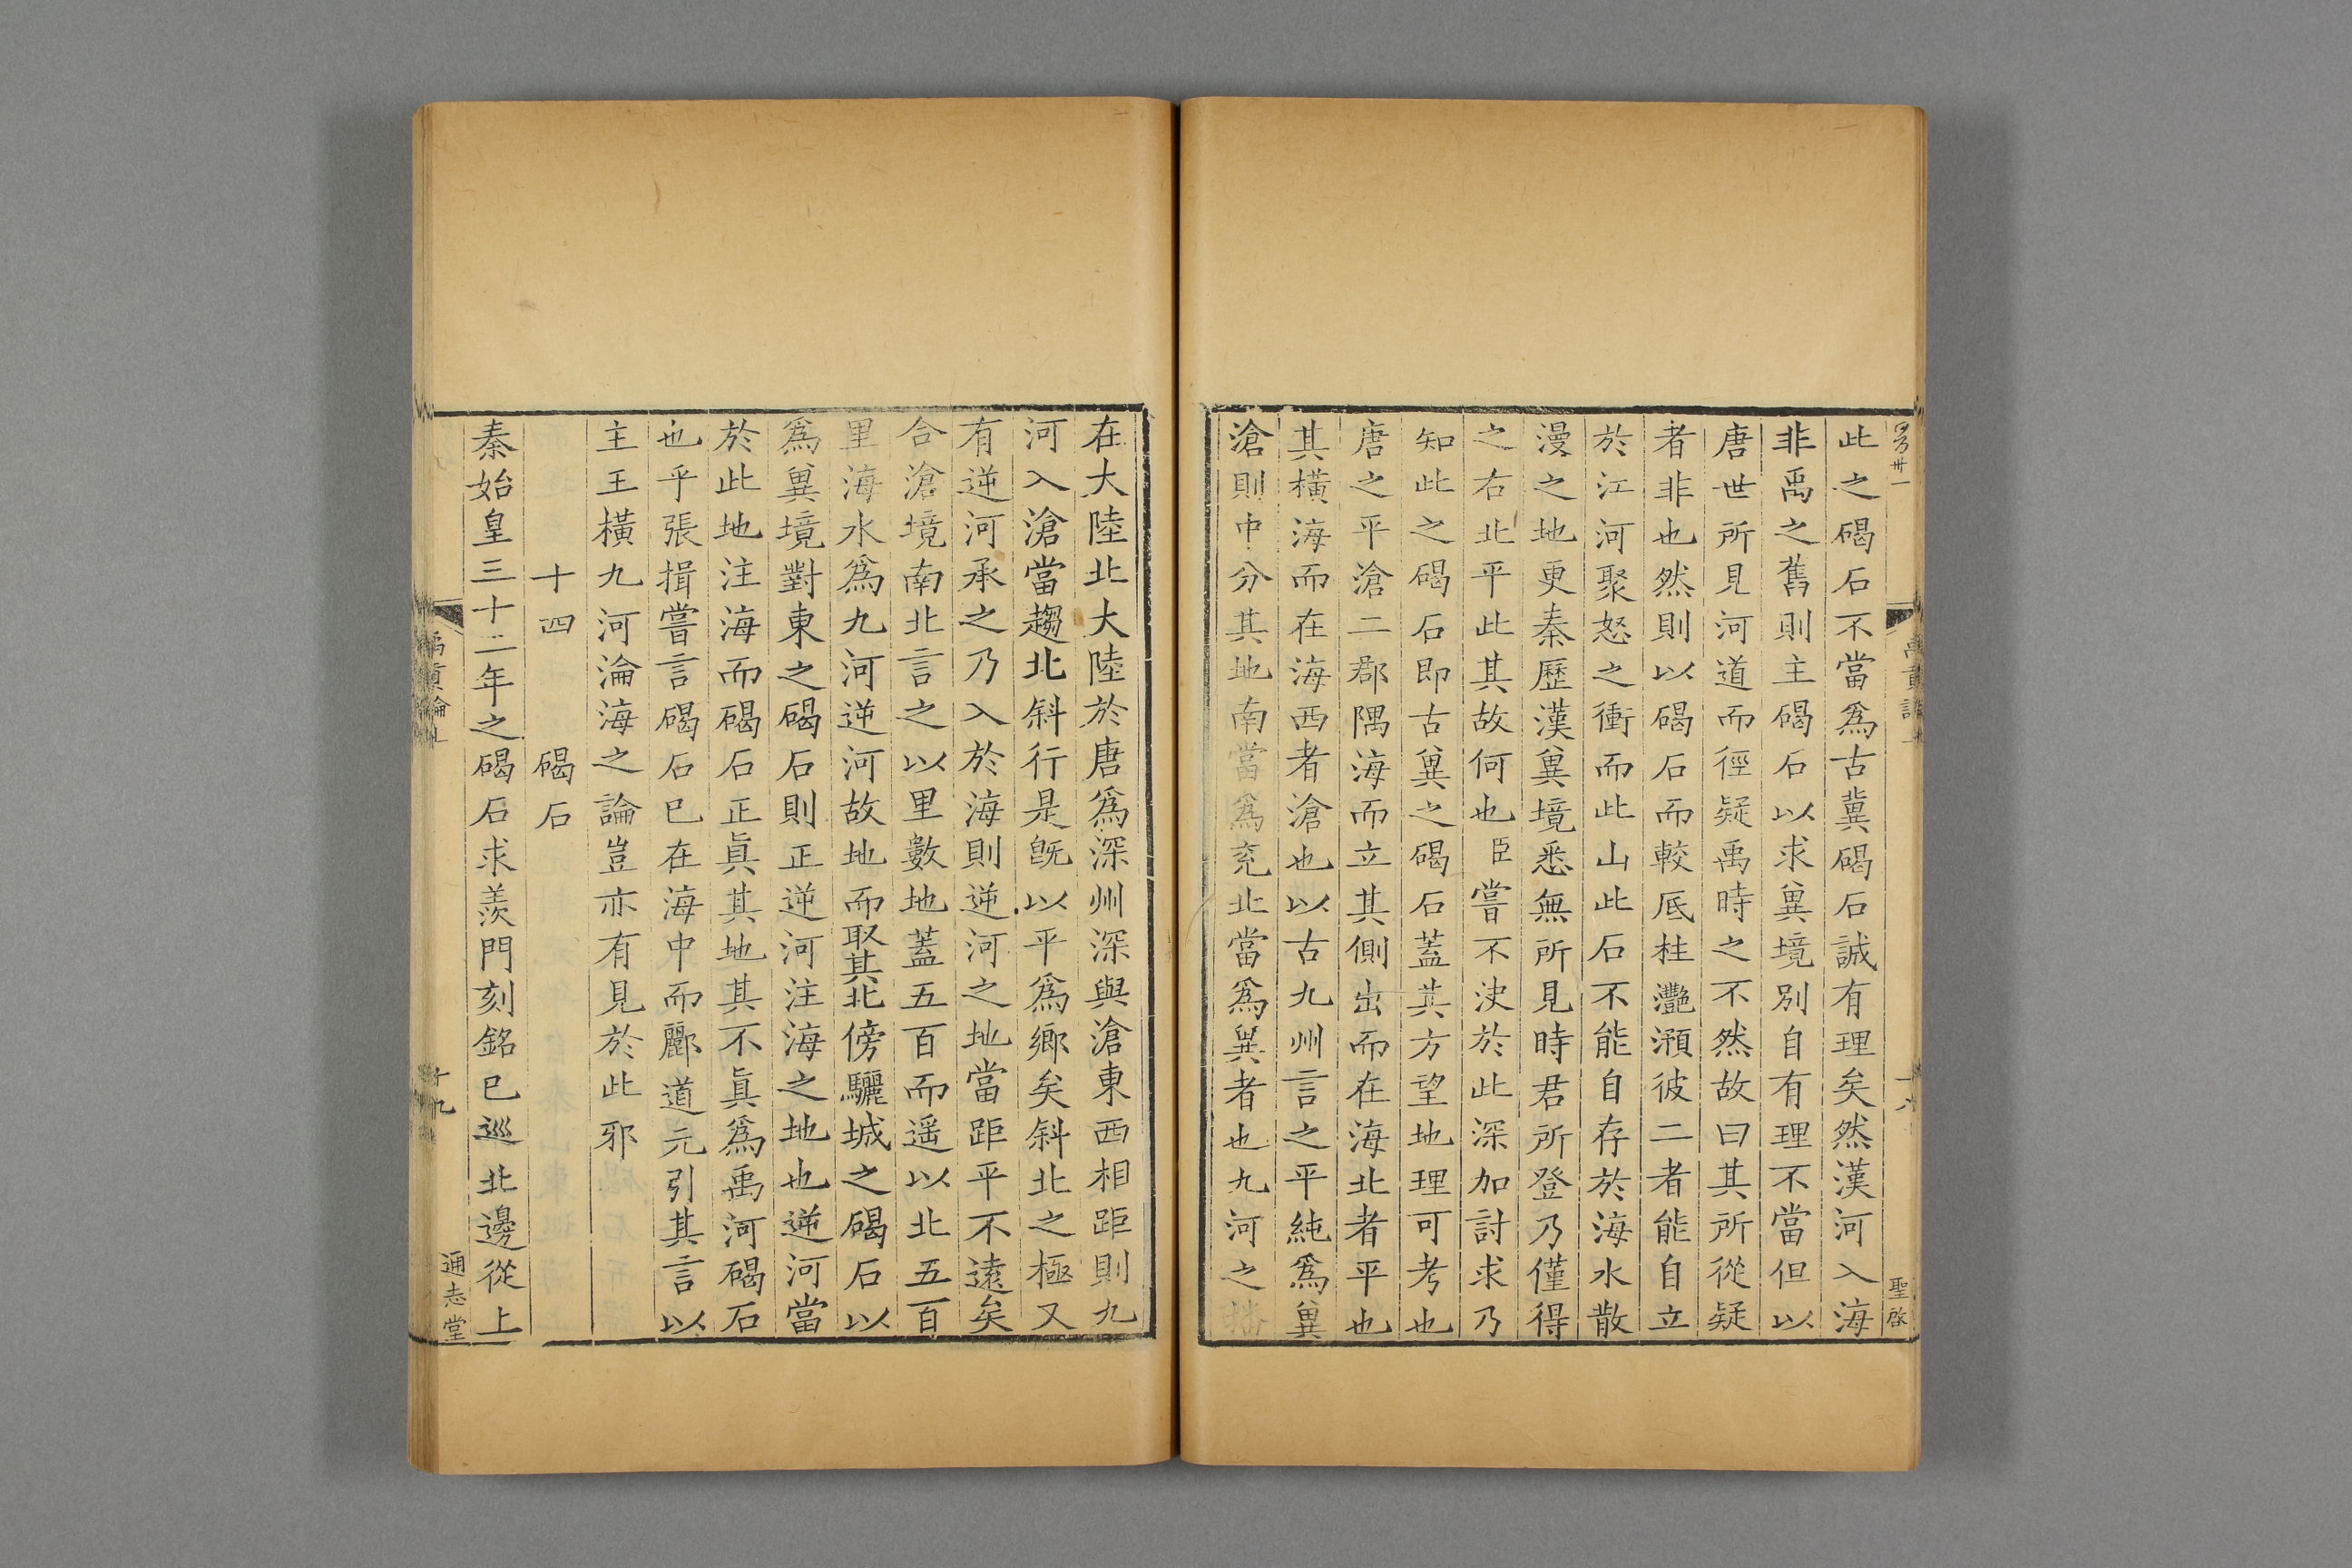 此之碣石不當爲古冀碣石誠有理矣然漢河入海
非禹之舊則主碣石以求冀境別自有理不當但以
唐世所見河道而徑疑禹時之不然故曰其所從疑
者非也然則以碣石而較厎柱灧澦彼二者能自立
於江河聚怒之衝而此山此石不能自存於海水散
漫之地更秦歷漢冀境悉無所見時君所登乃僅得
之右北平此其故何也臣嘗不決於此深加討求乃
知此之碣石即古冀之碣石蓋其方望地理可考也
唐之平滄二郡隅海而立其側出而在海北者平也
其橫海而在海西者滄也以古九州言之平純爲冀
滄則中分其地南當爲兖北當爲冀者也九河之播
在大陸北大陸於唐爲深州深與滄東西相距則九
河入滄當趨北斜行是旣以平爲鄉矣斜北之極又
有逆河承之乃入於海則逆河之地當距平不遠矣
合滄境南北言之以里數地蓋五百而遥以北五百
里海水爲九河逆河故地而取其北傍驪城之碣石以
爲冀境對東之碣石則正逆河注海之地也逆河當
於此地注海而碣石正眞其地其不眞爲禹河碣石
也乎張揖嘗言碣石已在海中而酈道元引其言以
主王橫九河淪海之論豈亦有見於此邪
十四 碣石
秦始皇三十二年之碣石求羨門刻銘已巡北邊從上
禹貢論上
十九
通志堂
聖啓